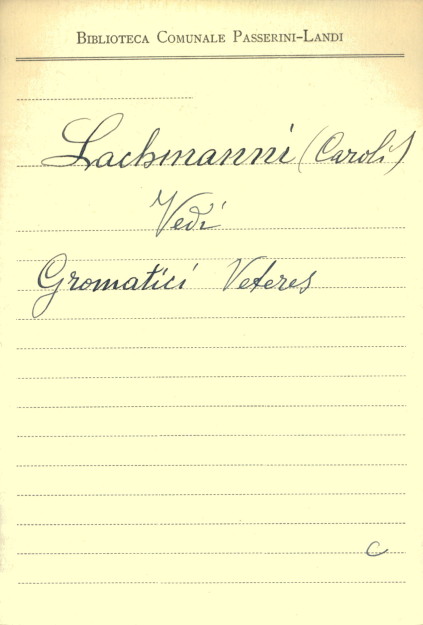 Biblioteca Comunale Passerini-Landi
Lachmanni (Caroli)
Vedi
Gromatici Veteres
C